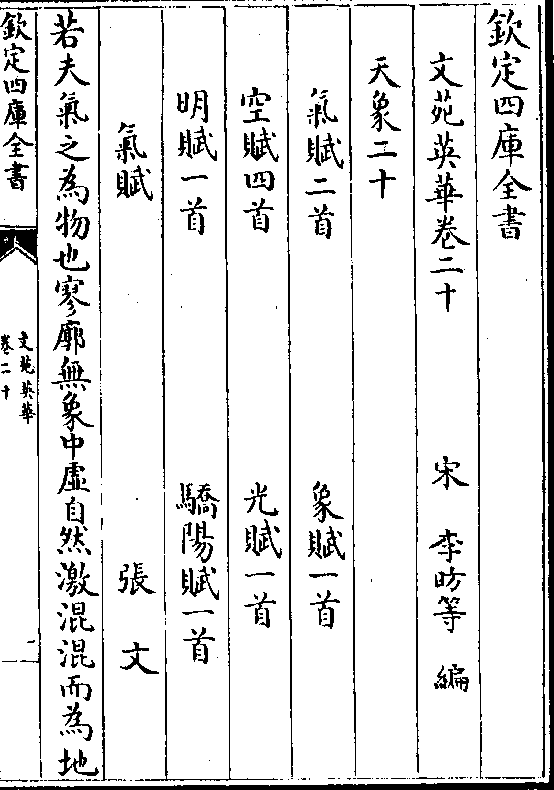 欽定四庫全書
文苑英華卷二十
宋 李昉等 編
天象二十
氣賦二首 象賦一首
空賦四首 光賦一首
明賦一首 驕陽賦一首
氣賦 張文
若夫氣之為物也寥廓無象中虛自然激混混而為地
欽定四庫全書
文苑英華
卷二十
一